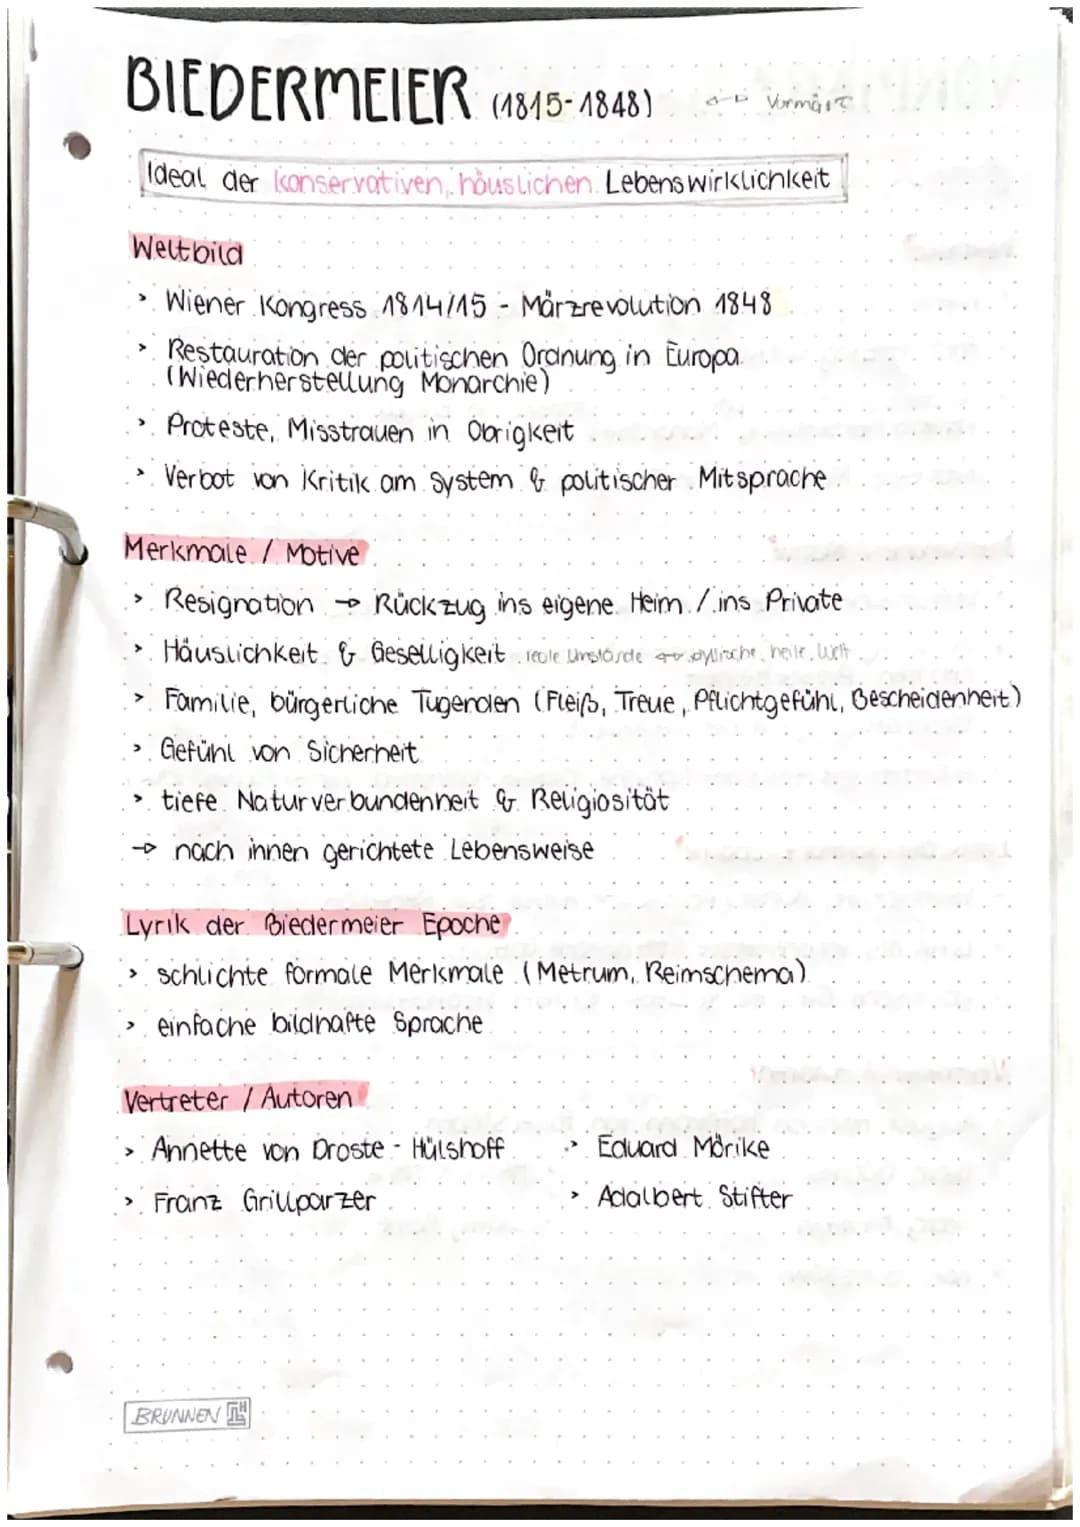 BIEDERMEIER (1815-1848) ↔ Vormärz
Ideal der konservativen, häuslichen Lebenswirklichkeit
Weltbild
> Wiener Kongress 1814/15 - Märzrevolution 1848
> Restauration der politischen Ordnung in Europa
(Wiederherstellung Monarchie)
> Proteste, Misstrauen in Obrigkeit
> Verbot von Kritik am System & politischer Mitsprache
Merkmale / Motive
> Resignation → Rückzug ins eigene Heim / ins Private
> Häuslichkeit & Geselligkeit reale Umstände ↔ idyllische, heile Welt
> Familie, bürgerliche Tugenden (Fleiß, Treue, Pflichtgefühl, Bescheidenheit)
> Gefühl von Sicherheit
> tiefe Naturverbundenheit & Religiosität
→ nach innen gerichtete Lebensweise
Lyrik der Biedermeier Epoche
> schlichte formale Merkmale (Metrum, Reimschema)
> einfache bildhafte Sprache
Vertreter / Autoren
> Annette von Droste - Hülshoff > Eduard Mörike
> Franz Grillparzer > Adalbert Stifter
BRUNNEN